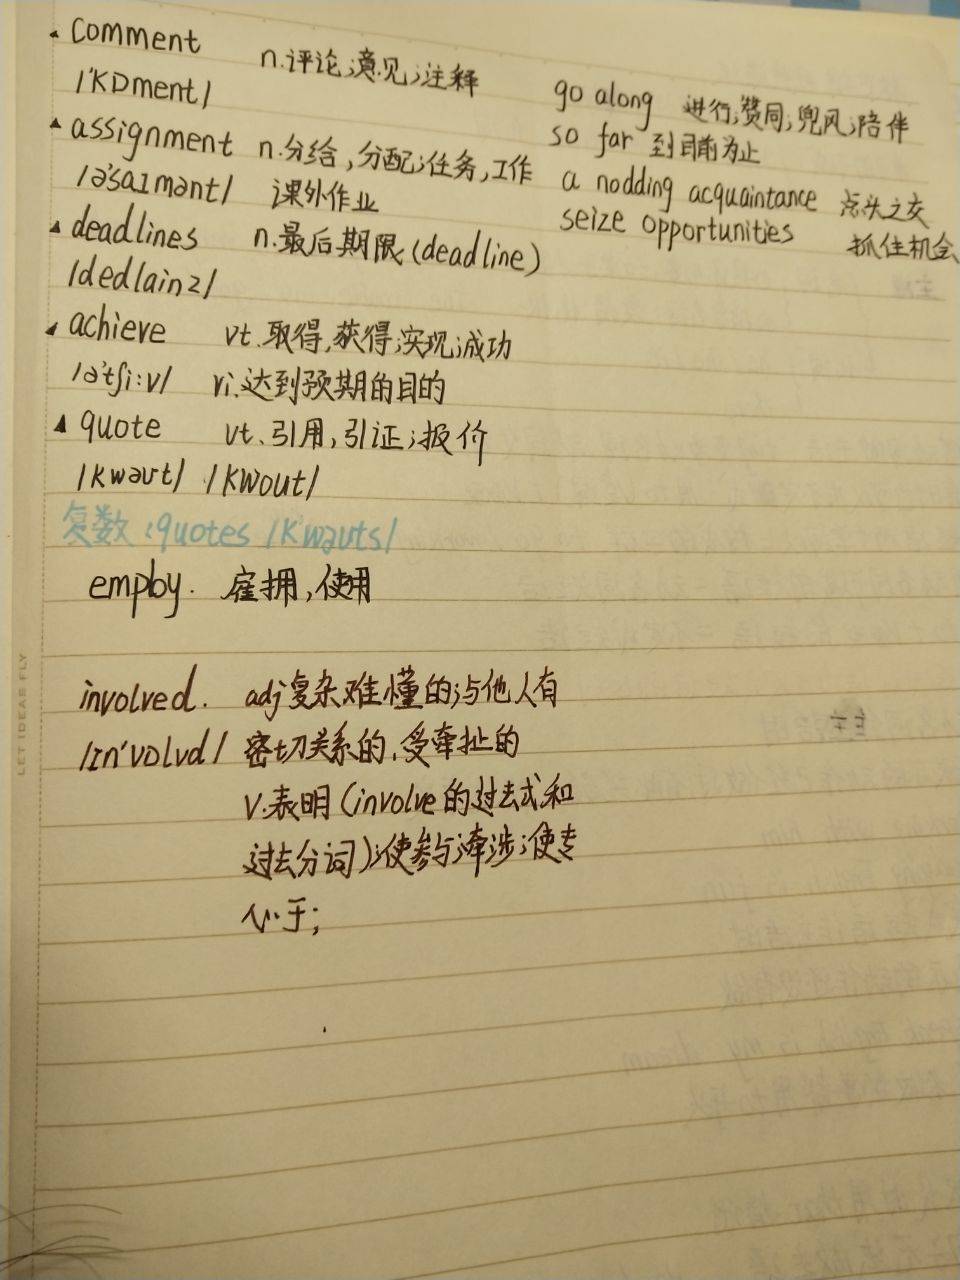 comment n.评论;意见;注释
/'kɒment/
assignment n.分给,分配;任务,工作
/ə'saɪmənt/ 课外作业
deadlines n.最后期限(deadline)
/dedlainz/
achieve vt.取得,获得;实现;成功
/ə'tʃi:v/ vi.达到预期的目的
quote vt.引用,引证;报价
/kwəut/ /kwout/
复数:quotes /kwəuts/
employ. 雇拥,使用
involved. adj复杂难懂的;与他人有
/ɪn'vɒlvd/ 密切关系的,受牵扯的
v.表明(involve的过去式和
过去分词);使参与;牵涉;使专
心于;
go along 进行;赞同;兜风;陪伴
so far 到目前为止
a nodding acquaintance 点头之交
seize opportunities 抓住机会
LET IDEAS FLY